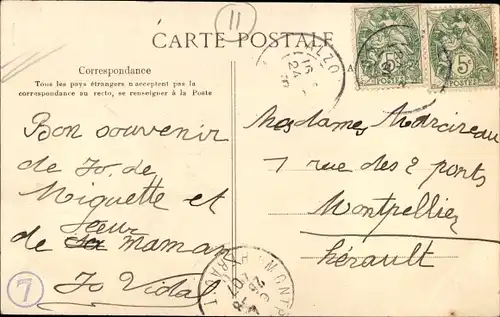 11
CARTE POSTALE
Correspondance
Tous les pays étrangers n'acceptent pas la
correspondance au recto, se renseigner à la Poste
Bon souvenir
de Jo, de
Miguette et
sœur
de sa maman
Jo Vidal
7
Mesdames Marcireau
7 rue des 2 ponts
Montpellier
hérault
5